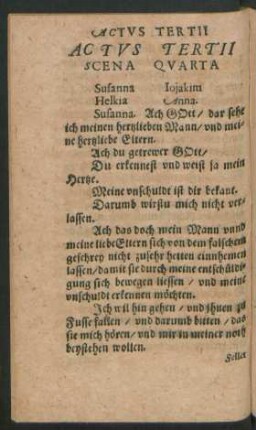 ACTVS TERTII
ACTVS TERTII
SCENA QVARTA
Susanna Iojakim
Helkia Anna.
Susanna. Ach GOtt/ dar sehe
ich meinen hertzlieben Mann/ vnd mei-
ne hertzliebe Eltern.
Ach du getrewer GOtt/
Du erkennest vnd weist ja mein
Hertze.
Meine vnschuldt ist dir bekant.
Darumb wirstu mich nicht ver-
lassen.
Ach das doch mein Mann vnnd
meine liebe Eltern sich von dem falschem
geschrey nicht zusehr hetten einnhemen
lassen/ damit sie durch meine entschüldi-
gung sich bewegen liessen/ vnd meine
vnschuldt erkennen möchten.
Ich wil hin gehen/ vnd jhnen zu
Fusse fallen/ vnd darumb bitten/ das
sie mich hören/ vnd mir in meiner noth
beystehen wollen.
Fellet